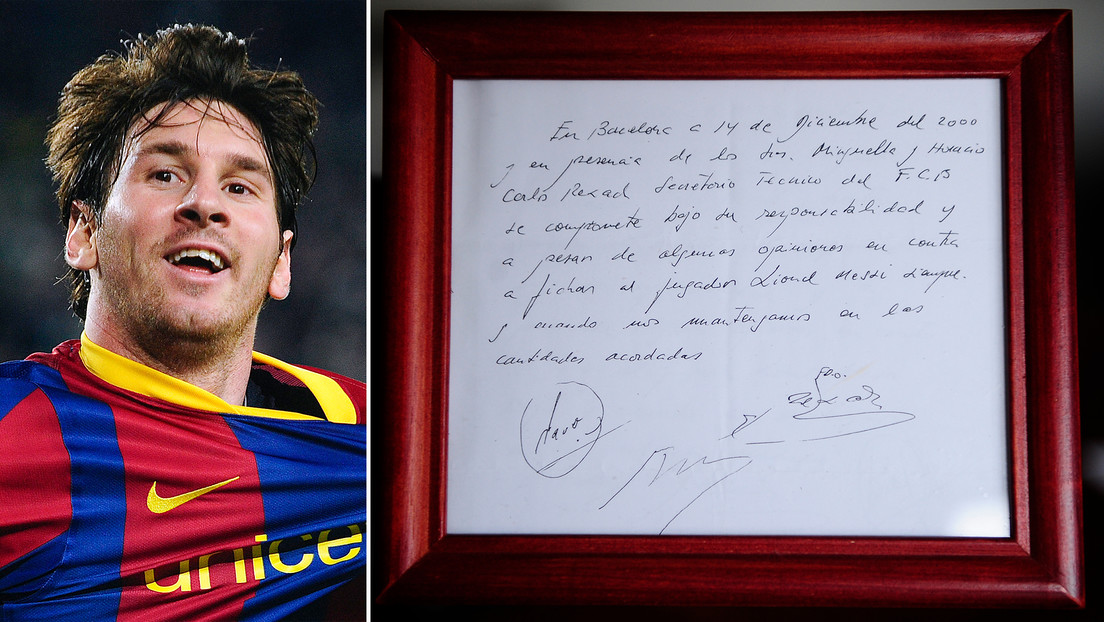 unice
En Barcelona a 14 de Diciembre del 2000
y en presencia de los Sres. Minguella y Horacio
Carlos Rexach Secretario Tecnico del F.C.B
se compromete bajo su responsabilidad y
a pesar de algunas opiniones en contra
a fichar al jugador Lionel Messi siempre
y cuando nos mantengamos en las
cantidades acordadas